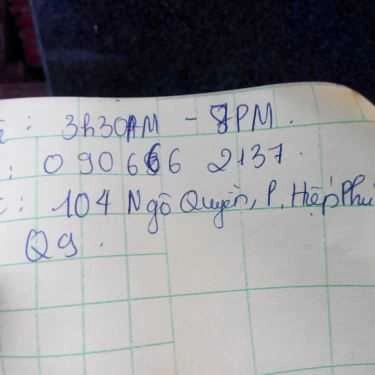 : 3h30AM - 8PM.
: 090 666 2137.
: 104 Ngô Quyền, P. Hiệp Phú
Q9.